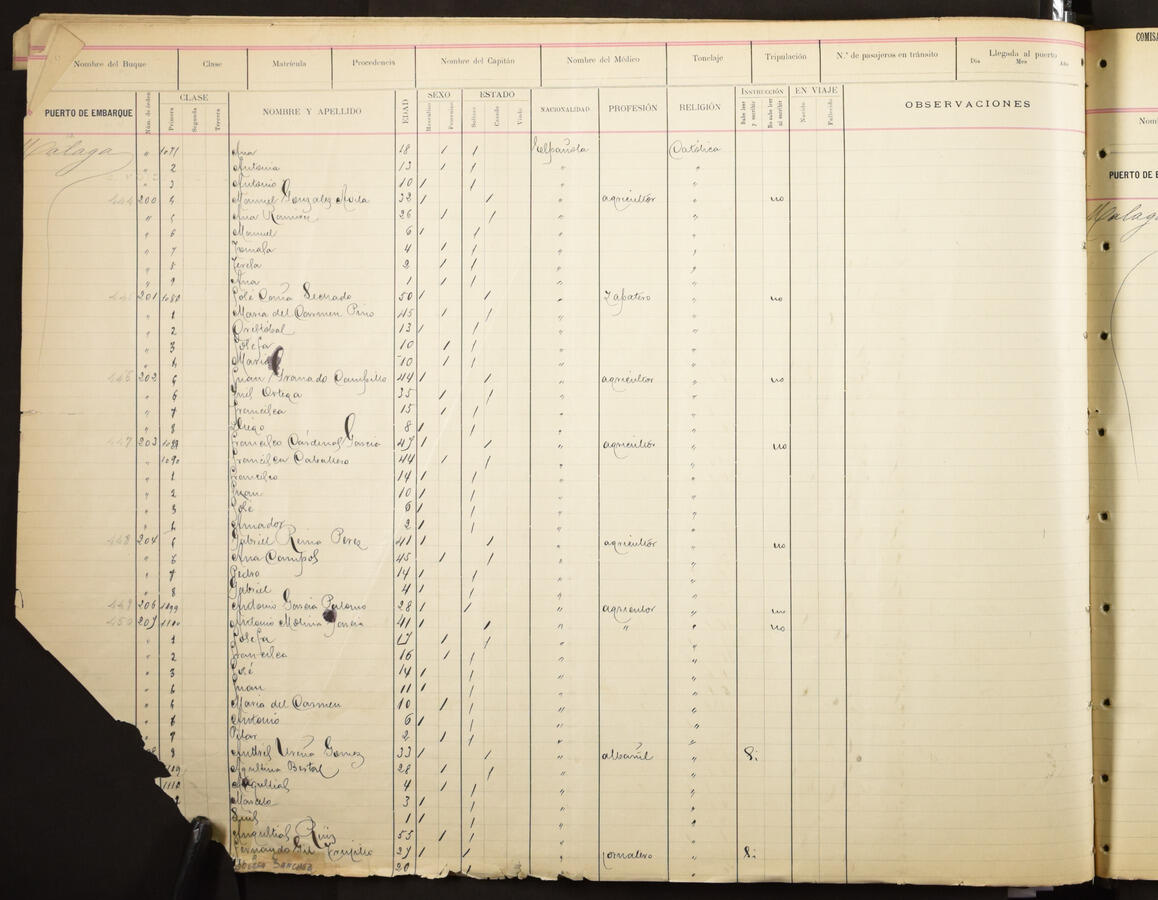 COMISA
Nombre del Buque Clase Matrícula Procedencia Nombre del Capitán Nombre del Médico Tonelaje Tripulación N.º de pasajeros en tránsito Llegada al puerto
Día Mes Año
PUERTO DE EMBARQUE Núm. de orden CLASE NOMBRE Y APELLIDO EDAD SEXO ESTADO NACIONALIDAD PROFESIÓN RELIGIÓN INSTRUCCIÓN EN VIAJE OBSERVACIONES
Primera Segunda Tercera Masculino Femenino Soltero Casado Viudo Sabe leer y escribir No sabe leer ni escribir Nacido Fallecido
Malaga " 1081 Ana 18 / / Española Católica
" 2 Antonia 13 / / " "
" 3 Antonio 10 / / " "
444 200 4 Manuel Gonzalez Avila 32 / / " agricultor " no
" 5 Ana Ramirez 26 / / " "
" 6 Manuel 6 / / " "
" 7 Tomasa 4 / / " "
" 8 Teresa 2 / / " "
" 9 Ana 1 / / " "
445 201 1080 José 50 / / " Zapatero " no
" 1 Maria del Carmen Pino 45 / / " "
" 2 Cristobal 13 / / " "
" 3 Josefa 10 / / " "
" 4 Maria 10 / / " "
446 202 5 Juan Granado Campillo 44 / / " agricultor " no
" 6 Ortega 35 / / " "
" 7 Francisca 15 / / " "
" 8 Diego 8 / / " "
447 203 1089 Francisco Cardenas Garcia 47 / / " agricultor " no
" 1090 Francisca Caballero 44 / / " "
" 1 Francisco 14 / / " "
" 2 Juan 10 / / " "
" 3 José 6 / / " "
" 4 Amador 2 / / " "
448 204 5 Gabriel Reina Perez 41 / / " agricultor " no
" 6 Ana Campos 45 / / " "
" 7 Pedro 14 / / " "
" 8 Gabriel 4 / / " "
449 206 1099 Antonio Garcia Palomo 28 / / " agricultor " no
450 207 1100 Antonio Molina Garcia 41 / / " " " no
" 1 Josefa / / " "
" 2 Francisca 16 / / " "
" 3 José 14 / / " "
" Juan 11 / / " "
" Maria del Carmen 10 / / " "
" Antonio 6 / / " "
" 7 Pilar 2 / / " "
8 Andres Ureña Gomez 33 / / " albañil " Si
1109 Agustina 28 / / " "
1110 Angustias 4 / / " "
Marcelo 3 / / " "
Luis 1 / / " "
Angustias Ruiz 55 / " "
Fernando Gil Trujillo 27 / / " jornalero " Si
SANCHEZ 20 / "
Nom
PUERTO DE E
Malaga